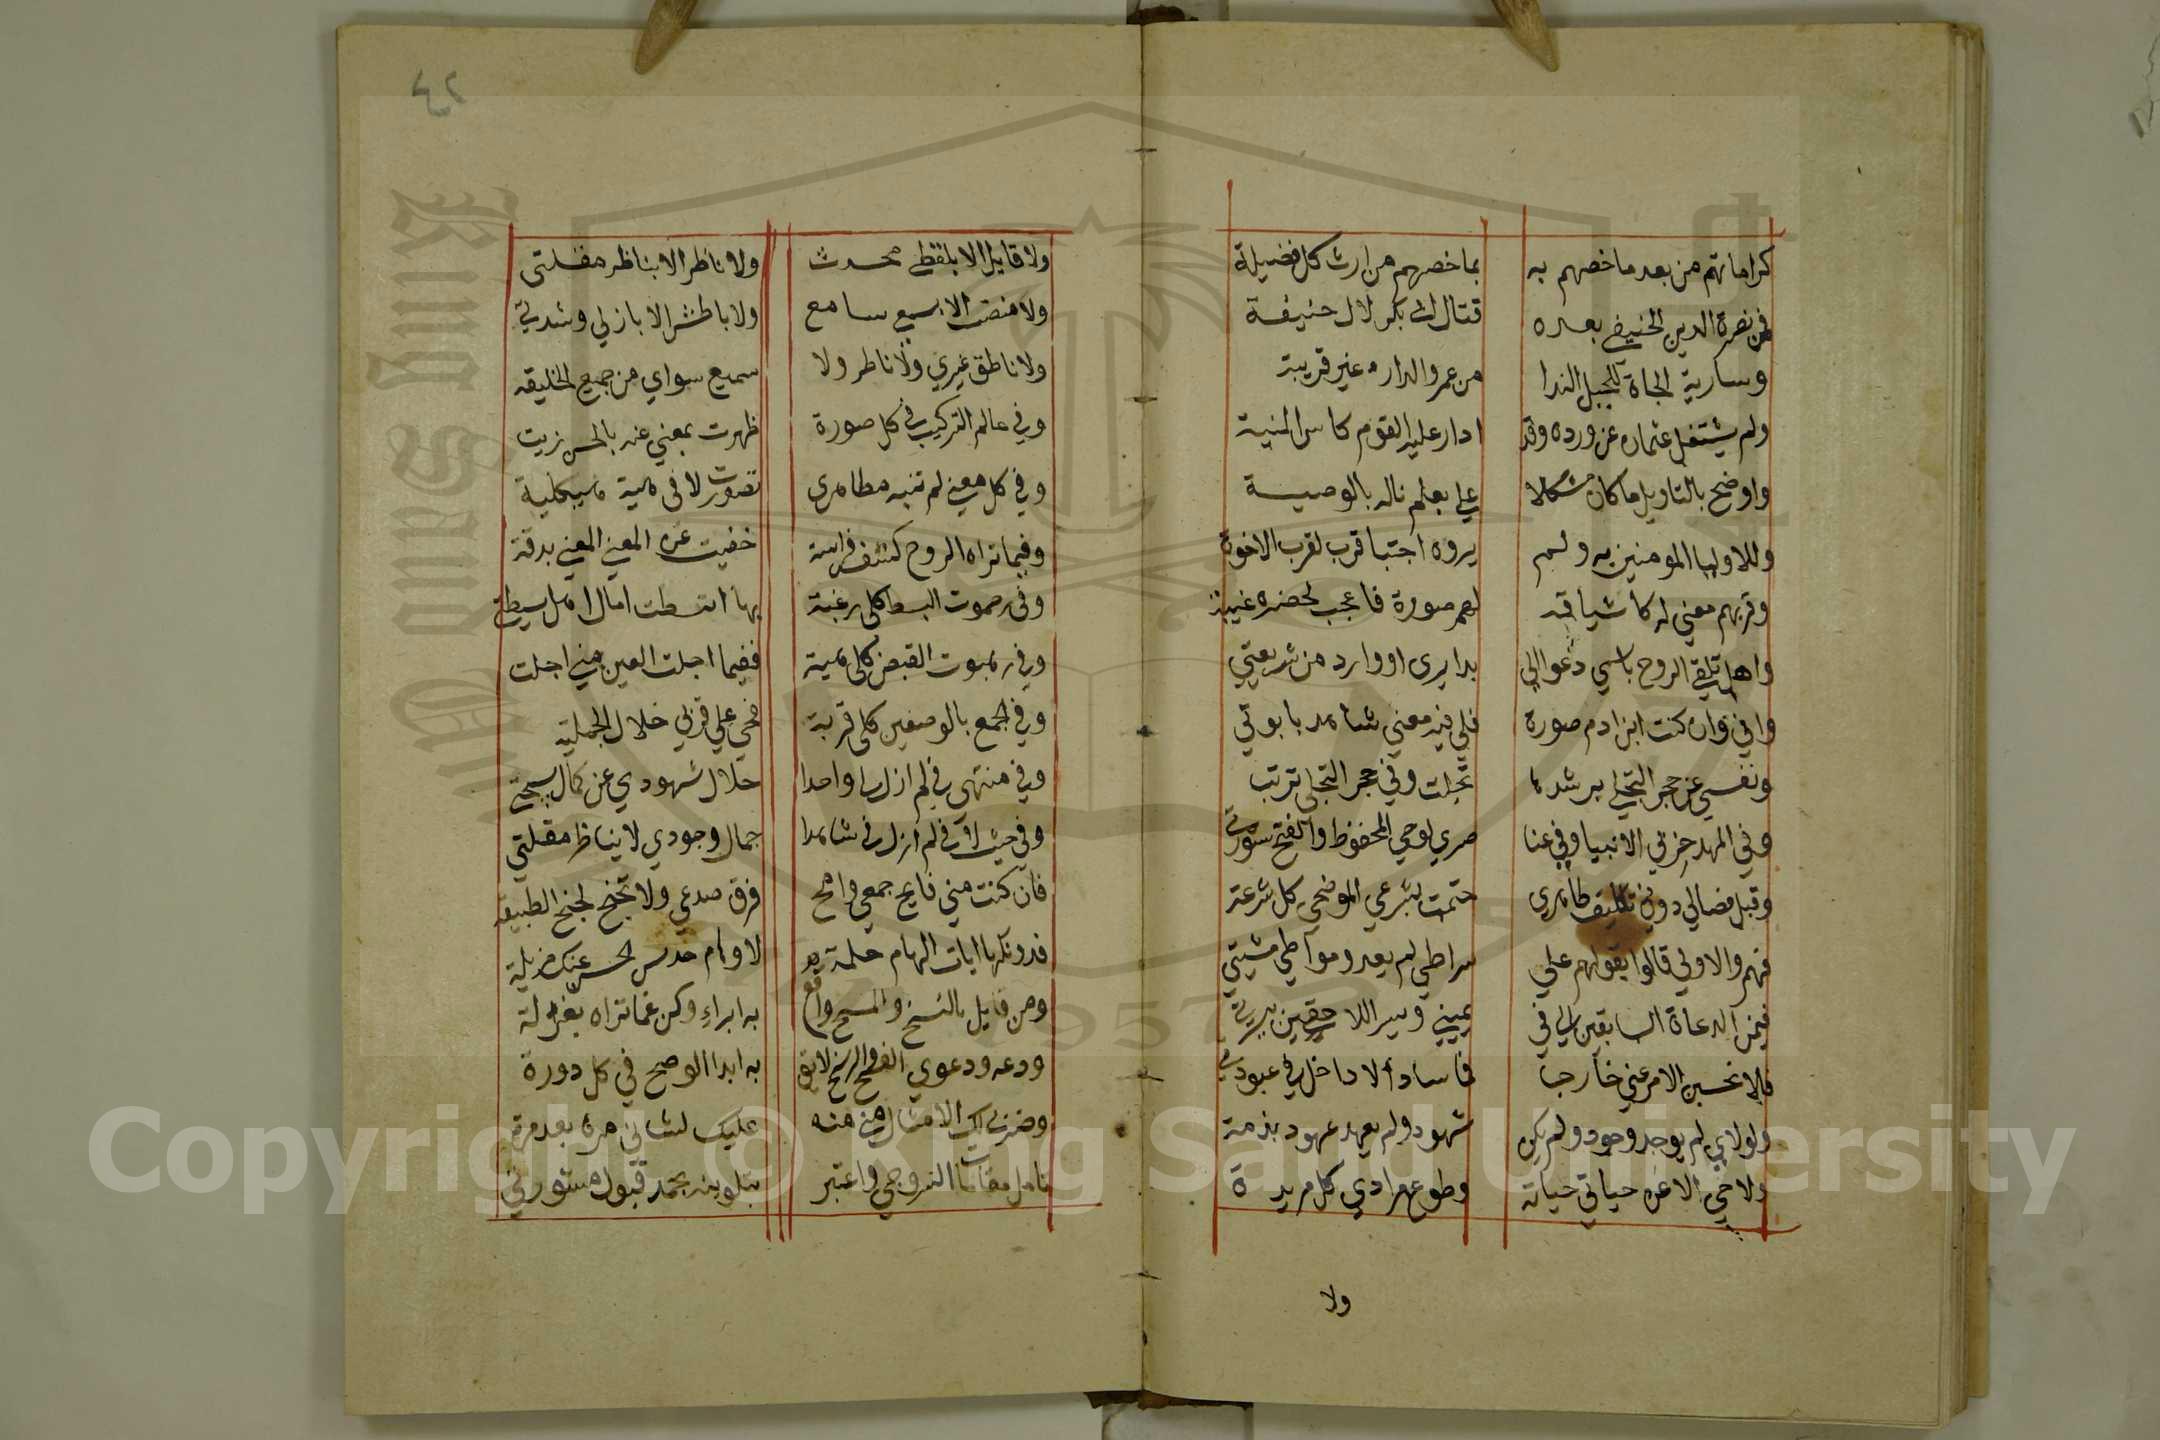 كراماتهم من بعد ما خصهم به بما خصهم من ارث كل فضيلة
فمن نصرة الدين الحنيفي بعده قتال ابي بكر لال حنيفة
وسارية الجاة للجبل الندا من عمر والدار غير قريبة
ولم يشتغل عثمان عن ورده وقد ادار عليه القوم كاس المنية
واوضح بالتاويل ما كان مشكلا علي بعلم ناله بالوصية
وللاوليا المومنين به ولم يروه اجتبا قرب لقرب الاخوة
وقربهم معني له كاشياقه لهم صورة فاعجب لحضرة غيبة
واهل تلقي الروح باسمي دعوا الي
واني وان كنت ابن ادم صورة فلي فيه معني شاهد بابوتي
ونفسي عن حجر التجلي برشدها تجلت وفي حجر التجلي تربت
وفي المهد حزبي الانبيا وفي عنا صري لوحي المحفوظ والفتح سورتي
وقبل فصالي دون تكليف ظاهري ختمت بشرعي الموضحي كل شرعة
فهم والاولي قالوا بقولهم علي سراطي لم يعدوا مواطي مشيتي
فيمن الدعاة السابقين الي في يميني ويسر اللاحقين بيسرتي
فلا تحسبن الامر عني خارجا فما ساد الا داخل في عبودتي
ولولاي لم يوجد وجود ولم يكن شهود ولم يعهد عهود بذمة
ولا حي الا عن حياتي حياته وطوع مرادي كل مريدة
ولا
٢٤
ولا قايل الا بلفظي محدث ولا ناظر الا بناظر مقلتي
ولا منصت الا بسمعي سامع ولا باطش الا بازلي وشدتي
ولا ناطق غيري ولا ناظر ولا سميع سواي من جميع الخليقه
وفي عالم التركيب في كل صورة ظهرت بمعني عنه بالحسن زيت
وفي كل معني لم تبنه مظاهري تصورت لا في هية هيكلية
وفيما تراه الروح كشف فراسة خفيت عن المعني المعني بدقة
وفي رحموت البسط كلي رغبة بها انبسطت امال اهل بسيطتي
وفي رهبوت القبض كلي هيبة ففيما اجلت العين مني اجلت
وفي الجمع بالوصفين كلي قربة فحي علي قربي خلال الجميلة
وفي منتهي في لم ازل بي واجدا جلال شهودي عن كمال سجيتي
وفي حيث لا في لم ازل في شاهدا جمال وجودي لا بناظر مقلتي
فان كنت مني فانح جمعي وامح فرق صدعي ولا تجنح لجنح الطبيعه
فدونكها ايات الهام حكمة لاوهام حدس الحس عنك مزيلة
ومن قايل بالنسخ والمسخ واقع به ابراء وكن عما تراه بعزلة
ودعه ودعوي الفسخ والرسخ لايق به ابدا لو صح في كل دورة
وضربي لك الامثال مني منة عليك لشاني مرة بعد مرة
تامل مقامات السروجي واعتبر بتلوينه تحمد قبول مشورتي